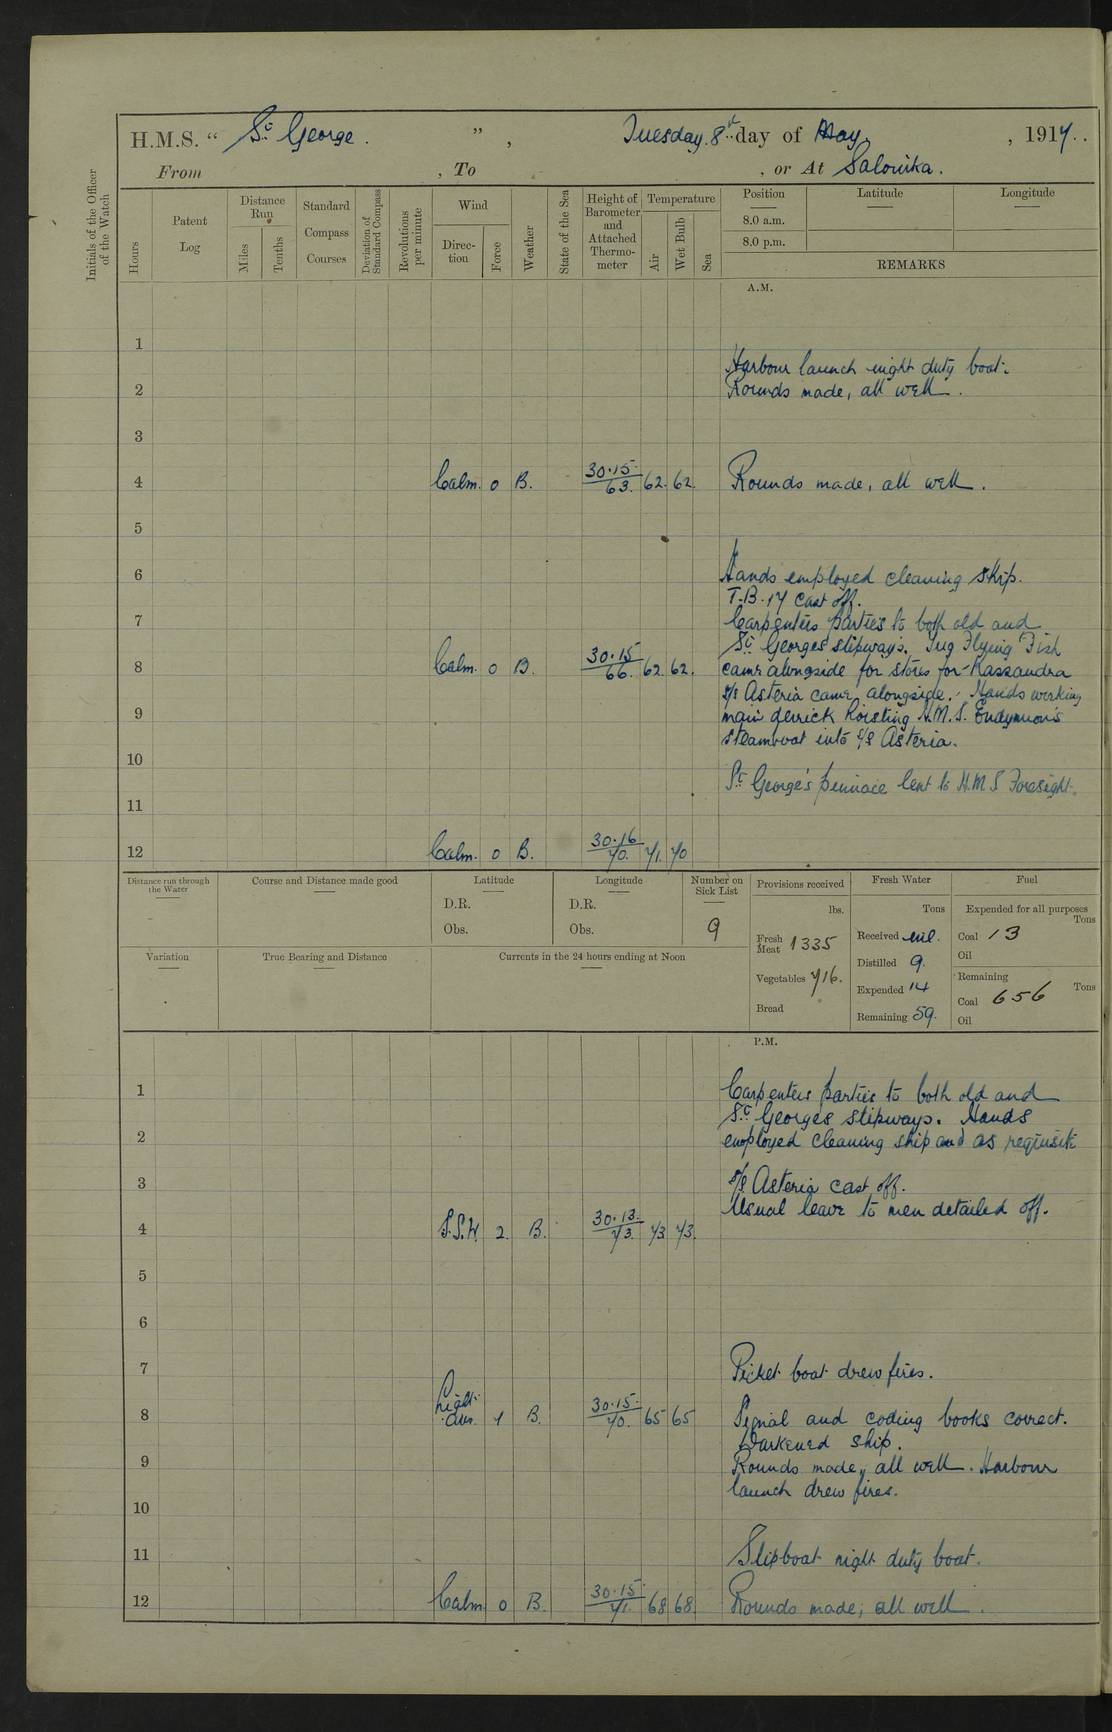 H.M.S. “ St George. ”, Tuesday. 8th day of May, 1917.
From , To , or At Salonika.
Initials of the Officer of the Watch
Hours
Patent Log
Distance Run
Miles
Tenths
Standard Compass Courses
Deviation of Standard Compass
Revolutions per minute
Wind
Direction
Force
Weather
State of the Sea
Height of Barometer and Attached Thermometer
Temperature
Air
Wet Bulb
Sea
Position
Latitude
Longitude
8.0 a.m.
8.0 p.m.
REMARKS
A.M.
1
Harbour launch night duty boat.
2 Rounds made, all well.
3
4 Calm. 0 B. 30.15 63. 62. 62. Rounds made, all well.
5
6 Hands employed cleaning ship.
T.B. 17 cast off.
7 Carpenters parties to both old and
St Georges slipways. Tug Flying Fish
8 Calm. 0 B. 30.15 66. 62. 62. came alongside for stores for Kassandra
s/s Asteria came alongside. Hands working
9 main derrick hoisting H.M.S. Endymion's
steamboat into s/s Asteria.
10
St George's pinnace lent to H.M.S Foresight.
11
12 Calm. 0 B. 30.16 70. 71. 70
Distance run through the Water
Course and Distance made good
Latitude
D.R.
Obs.
Longitude
D.R.
Obs.
Number on Sick List
9
Provisions received
lbs.
Fresh Meat 1335
Vegetables 716.
Bread
Fresh Water
Tons
Received nil.
Distilled 9.
Expended 14
Remaining 59.
Fuel
Expended for all purposes
Tons
Coal 13
Oil
Remaining
Tons
Coal 656
Oil
Variation
True Bearing and Distance
Currents in the 24 hours ending at Noon
P.M.
1 Carpenters parties to both old and
St Georges slipways. Hands
2 employed cleaning ship and as requisite
3 s/s Asteria cast off.
Usual leave to men detailed off.
4 S.S.W. 2. B. 30.13. 73. 73 73.
5
6
7 Picket boat drew fires.
8 Light airs. 1 B. 30.15. 70. 65 65 Signal and coding books correct.
Darkened ship.
9 Rounds made, all well. Harbour
launch drew fires.
10
11 Slipboat night duty boat.
12 Calm. 0 B. 30.15 71. 68 68 Rounds made, all well.